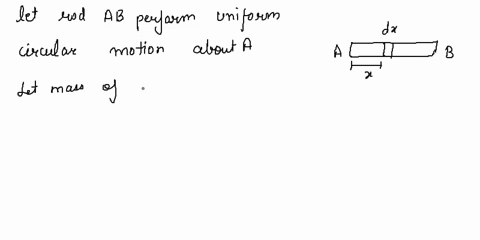 let rod AB perform uniform
circular motion about A
Let mass of
dx
A
B
x